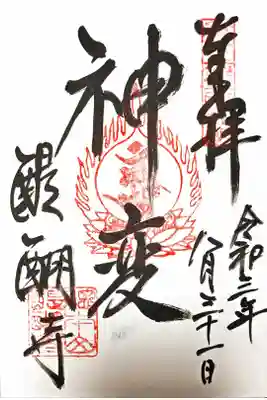 奉拝
令和二年
八月二十一日
神変
醍醐寺